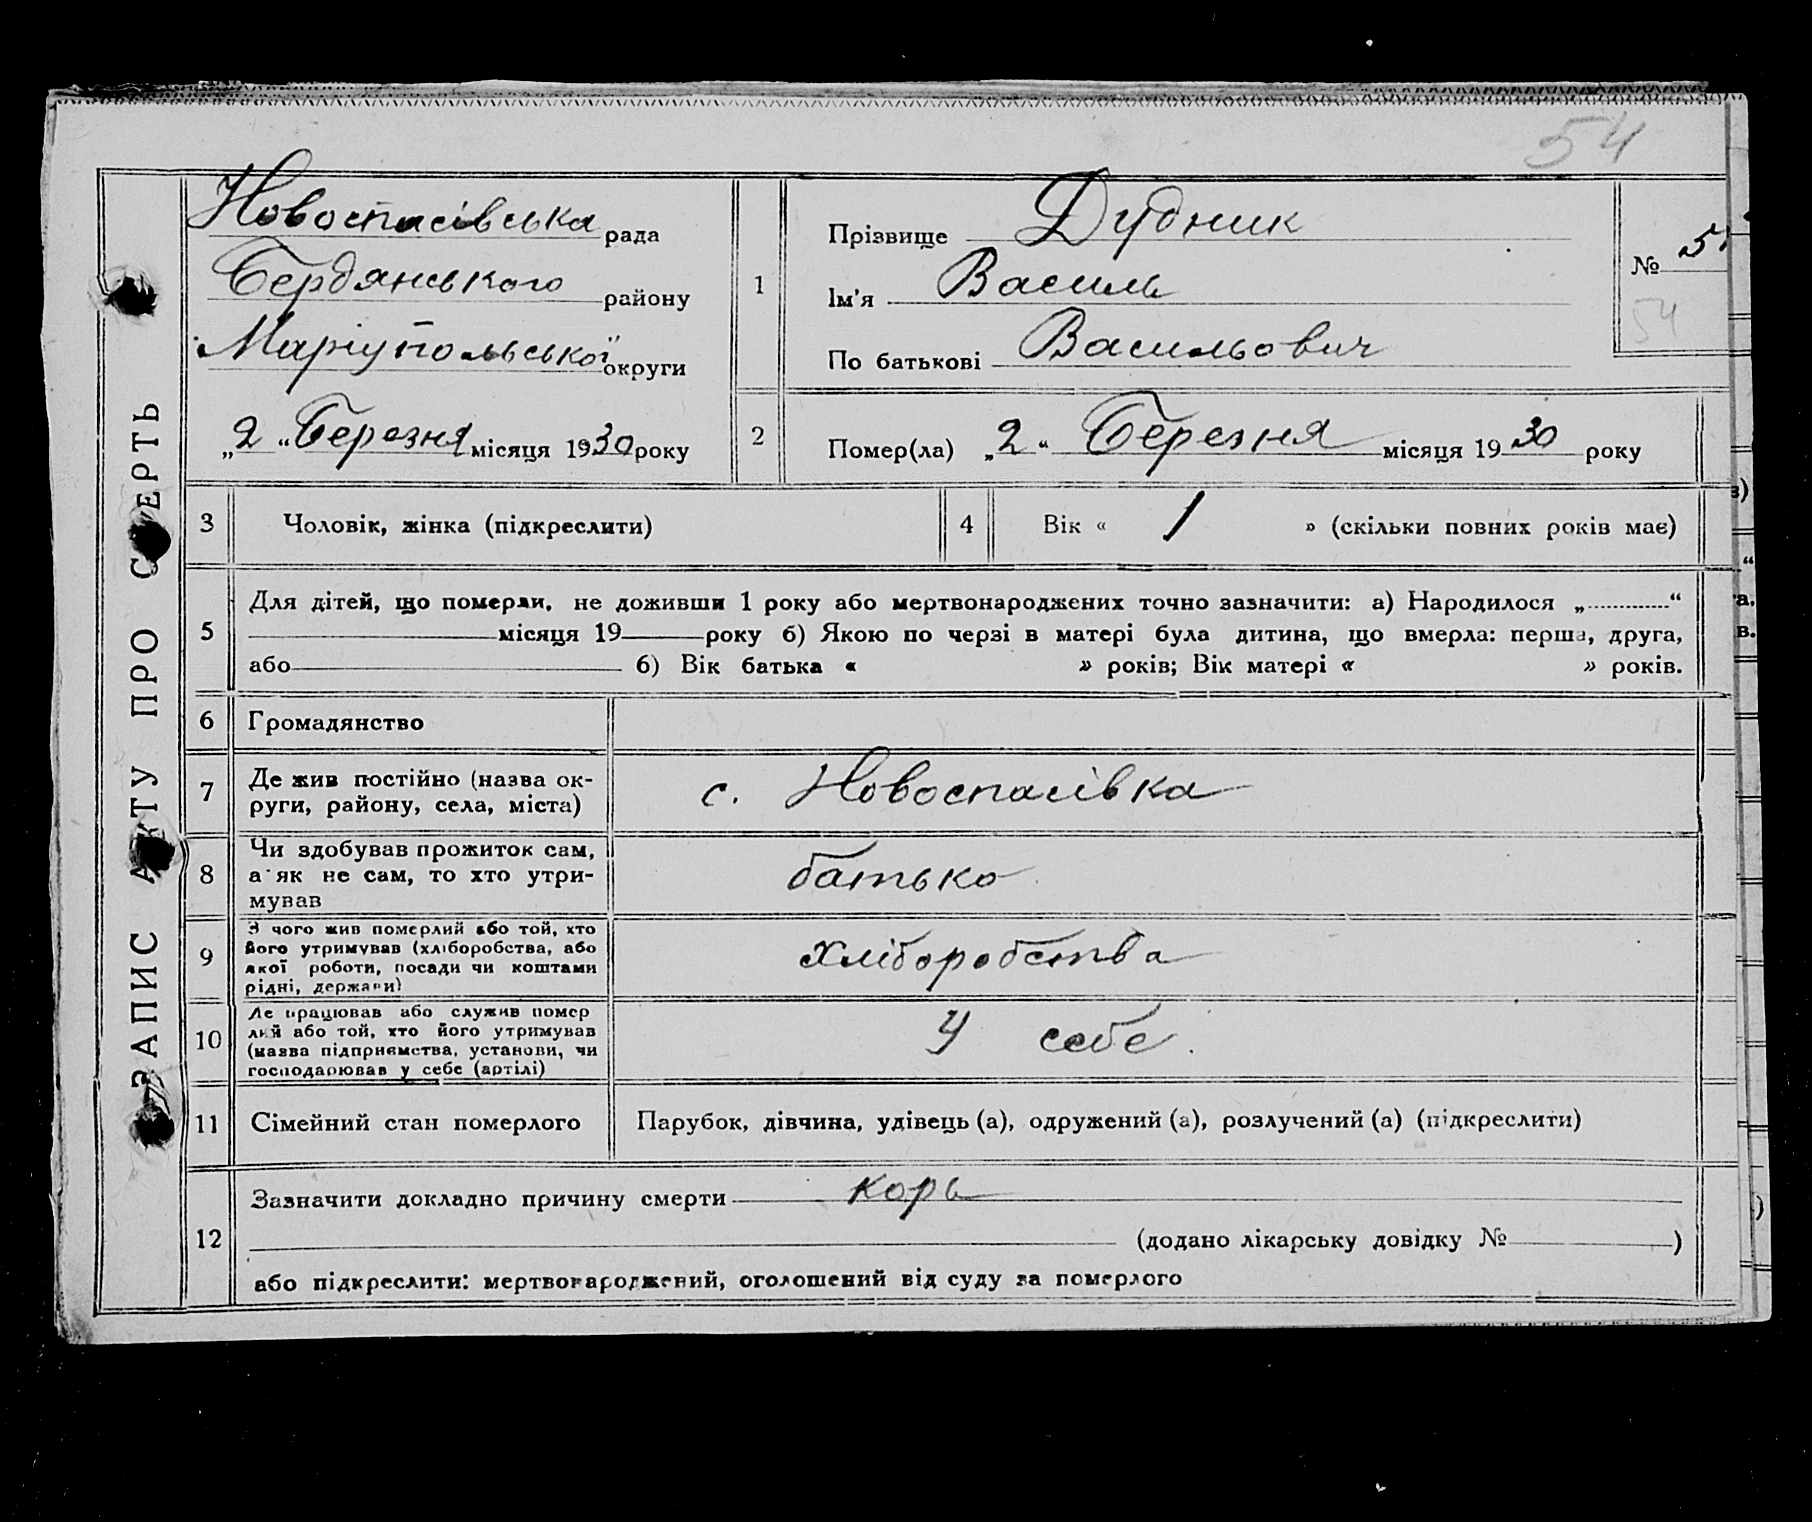 54
Новоспасівська рада
Бердянського району
Маріупольської округи
„2“ Березня місяця 1930 року
1
Прізвище Дудник
Ім'я Василь
По батькові Васильович
№ 5
54
2
Помер(ла) „2“ Березня місяця 1930 року
ЗАПИС АКТУ ПРО СМЕРТЬ
3 Чоловік, жінка (підкреслити)
4 Вік « 1 » (скільки повних років має)
5
Для дітей, що померли, не доживши 1 року або мертвонароджених точно зазначити: а) Народилося „............“
місяця 19 року б) Якою по черзі в матері була дитина, що вмерла: перша, друга,
або 6) Вік батька « » років; Вік матері « » років.
6 Громадянство
7 Де жив постійно (назва ок-
руги, району, села, міста)
с. Новоспасівка
8 Чи здобував прожиток сам,
а як не сам, то хто утри-
мував
батько
9 З чого жив померлий або той, хто
його утримував (хліборобства, або
якої роботи, посади чи коштами
рідні, держави)
Хліборобства
10 Де працював або служив помер
лий або той, хто його утримував
(назва підприємства, установи, чи
господарював у себе (артілі)
У себе.
11 Сімейний стан померлого
Парубок, дівчина, удівець (а), одружений (а), розлучений (а) (підкреслити)
12
Зазначити докладно причину смерти корь
(додано лікарську довідку № )
або підкреслити: мертвонароджений, оголошений від суду за померлого